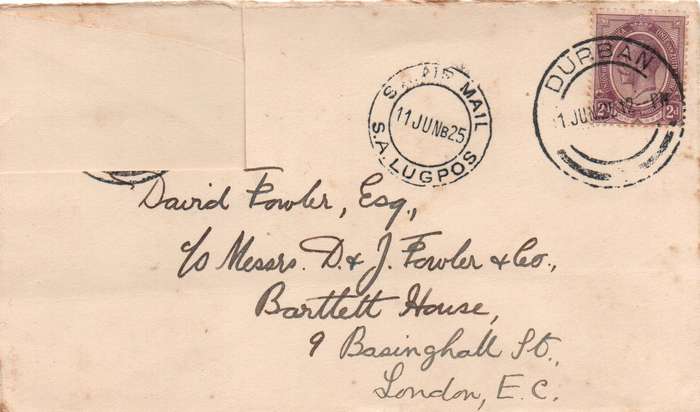 S.A. AIR MAIL
11 JUN B 25
S.A. LUGPOS
DURBAN
11 JUN 25
2d 2d
David Fowler, Esq.,
c/o Messrs. D. & J. Fowler & Co.,
Bartlett House,
9 Basinghall St.,
London, E.C.